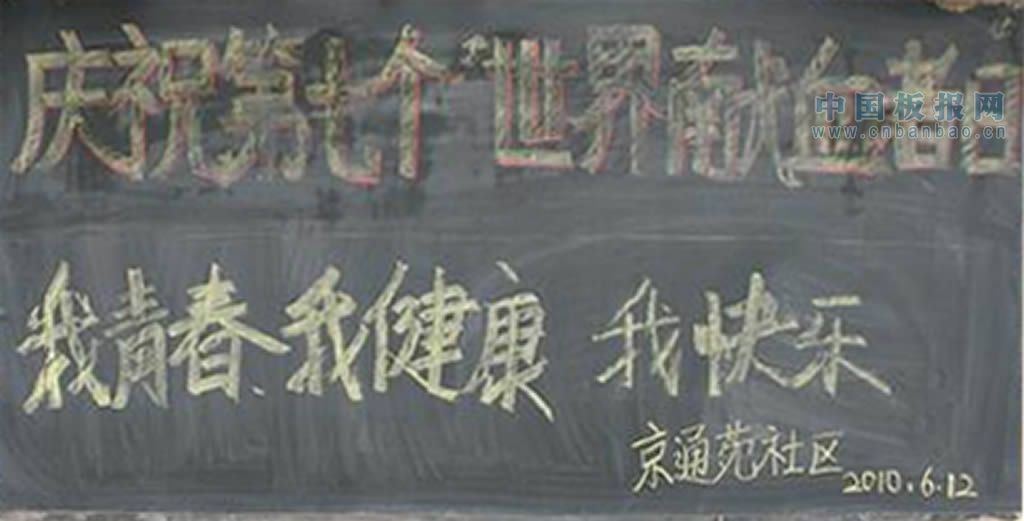 庆祝第七个“世界献血者日
中国板报网
www.cnbanbao.cn
我青春、我健康 我快乐
京通苑社区 2010.6.12